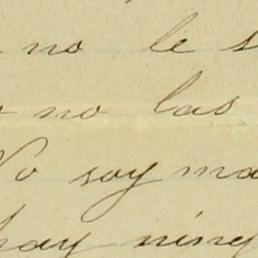 no le s
no las
No soy ma
hay ning